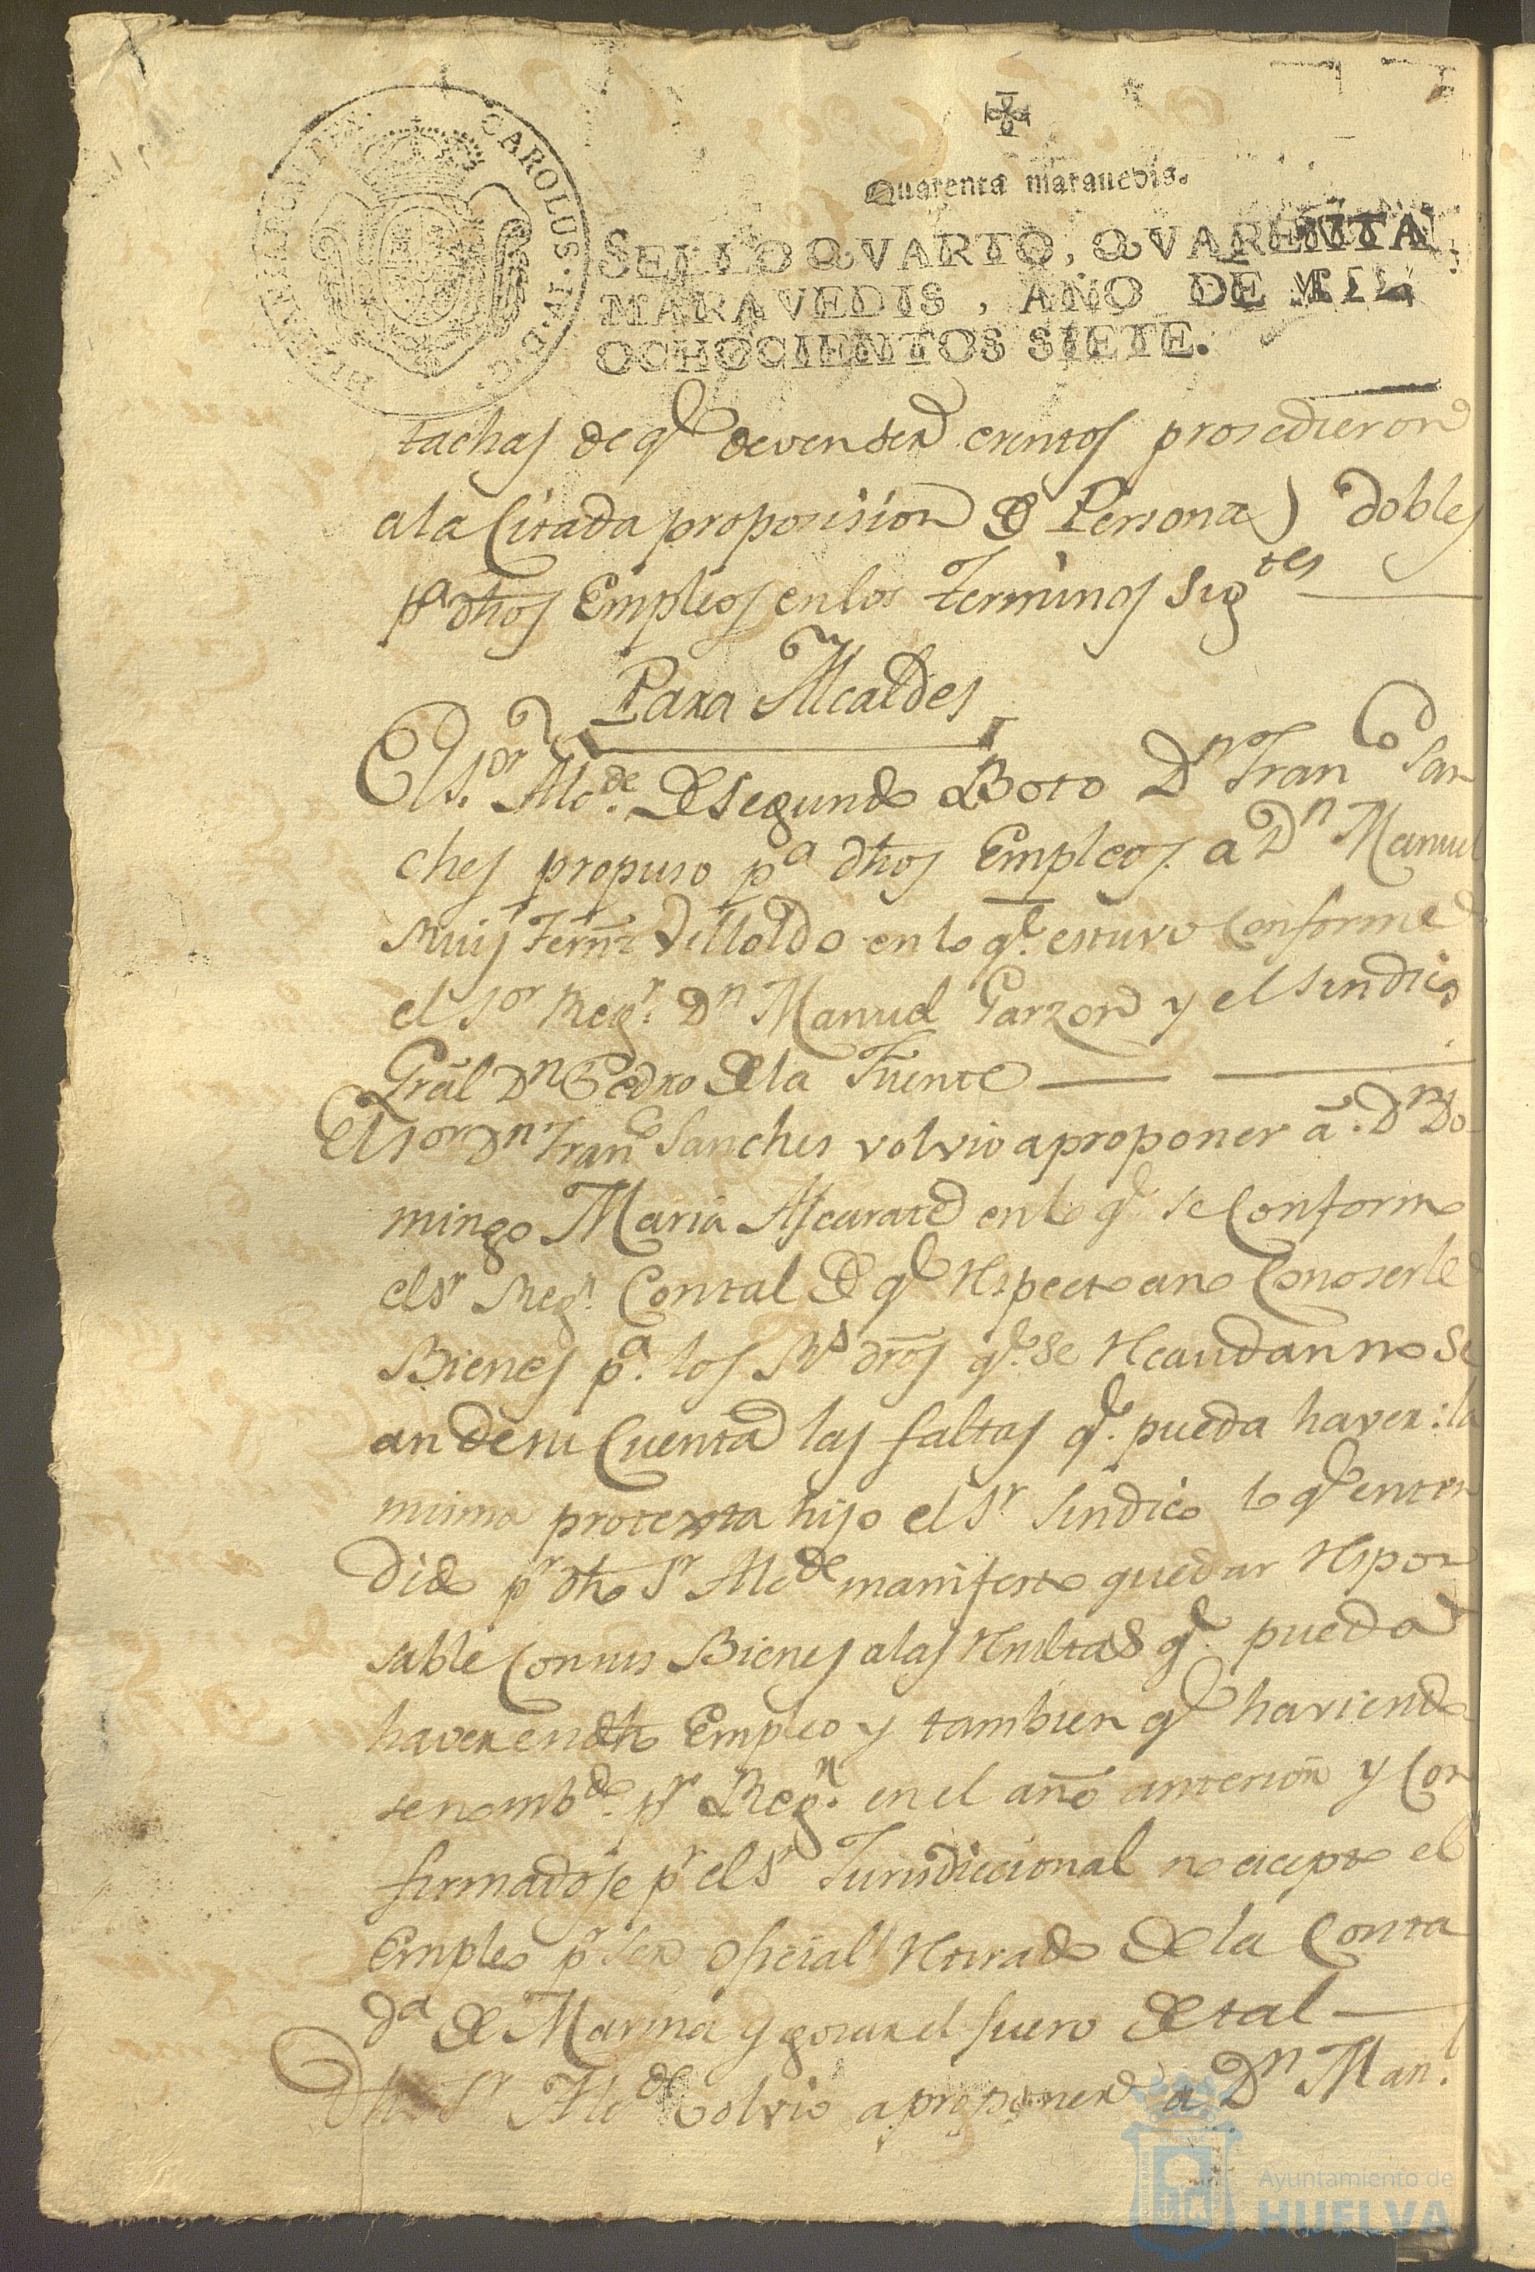 HISPANIARUM REX. CAROLUS. IV. D. G.
Quarenta maravedis.
SELLO QVARTO, QVARENTA
MARAVEDIS, AÑO DE MIL
OCHOCIENTOS SIETE.
tachas de qe. deven ser exentos prosedieron
a la Citada proposision de Personas dobles
pa. dhos Empleos en los terminos Sigtes
Para Alcaldes
El Sor. Alcde. de Segundo Boto Dn. Franco San
ches propuso pa dhos Empleos a Dn Manuel
Ruis Fernz Villoldo en lo qe. estuvo Conforme
el Sor Regr. Dn Manuel Garzon y el Sindico
Gral Dn Pedro de la Fuente
El Sor Dn Franco Sanches volvio a proponer á Dn Do
mingo Maria Ascarate en lo qe se Conformo
el Sr Regr. Con tal de qe respecto a no Conoserle
Bienes pa. los Rs dros qe. se recaudan no Se
an de su Cuenta las faltas qe. pueda haver: la
misma protexta hijo el Sr Sindico lo qe enten
dido pr dho Sr Alcde manifesto quedar respon
sable Con sus Bienes a las resultas qe. pueda
haver en dho Empleo y tambien qe haviendo
se nombdo. pr Regr. en el año anterior y Con
firmadose pr el Sr Jurisdiccional no acepto el
Empleo pr ser oficial retirado de la Conta
da de Marina y gosar el fuero de tal
Dho Sr Alcde Volvio a proponer a Dn Manl.
Ayuntamiento de
HUELVA